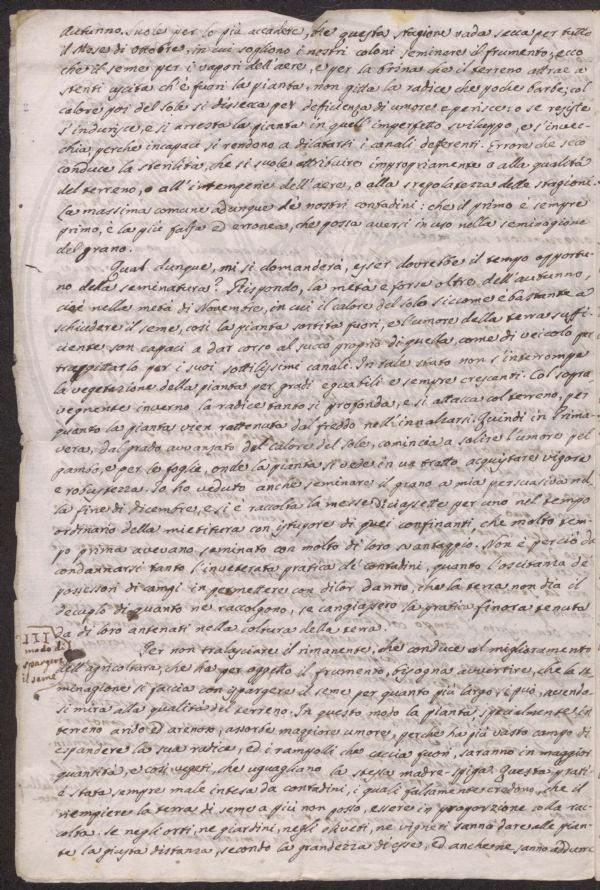 Autunno. Suole per lo più accadere, che questa stagione vada secca per tutto
il Mese di Ottobre, in cui sogliono i nostri coloni seminare il frumento; ecco
che il seme per i vapori dell'aere, e per la brina che il terreno attrae a
stenti uscita ch'è fuori la pianta, non gitta la radice che poche barbe; col
calore poi del sole si disseca per deficienza di umore e perisce; o se resiste
s'indurisce, e si arresta la pianta in quell'imperfetto sviluppo, e s'invec-
chia; perche incapaci si rendono a dilatarsi i canali deferenti. Errore che seco
conduce la sterilità, che si suole attribuire impropriamente o alla qualità
del terreno, o all'intemperie dell'aere, o alla sregolatezza delle stagioni.
La massima comune adunque de' nostri contadini: che il primo è sempre
primo, è la più falsa ed erronea, che possa aversi in uso nella seminagione
del grano.
Qual dunque, mi si domanderà, esser dovrebbe il tempo opportu-
no della seminatura? Rispondo, la metà e forse oltre dell'autunno,
cioè nella metà di Novembre, in cui il calore del sole siccome è bastante a
schiudere il seme, così la pianta sortita fuori, e l'umore della terra suffi-
ciente son capaci a dar corso al succo proprio di quella come di veicolo per
traggittarlo per i suoi sottilissimi canali. In tale stato non s'interrompe
la vegetazione della pianta per gradi eguabili e sempre crescenti. Col sopra-
vegnente inverno la radice tanto si profonda, e si attacca col terreno, per
quanto la pianta vien rattenuta dal freddo nell'innalzarsi. Quindi in Prima-
vera, dal grado avvanzato del calore del sole, comincia a salire l'umore pel
gambo, e per le foglie, onde la pianta si vede in un tratto acquistare vigore
e robustezza. Io ho veduto anche seminare il grano a mia persuasiva nel-
la fine di dicembre, e si è raccolta la messe diciassette per uno nel tempo
ordinario della mietitura con istupore di quei confinanti, che molto tem-
po prima avevano seminato con molto di loro svantaggio. Non è perciò da
condannarsi tanto l'inveterata pratica di contadini, quanto l'oscitanza de'
possessori di campi in permettere con di lor danno, che la terra non dia il
decuplo di quanto ne raccolgono, se cangiassero la pratica finora tenuta
da di loro antenati nella coltura della terra.
III
modo di
spargere
il seme
Per non tralasciare il rimanente, che conduce al miglioramento
dell'agricoltura, che ha per oggetto il frumento, bisogna avvertire, che la se-
minagione si faccia con ispargere il seme per quanto più largo si può, avendo-
si mira alla qualità del terreno. In questo modo la pianta, specialmente in
terreno arido ed arenoso, assorbe maggiore umore, perche ha più vasto campo di
espandere la sua radice, ed i rampolli che caccia fuori, saranno in maggior
quantità, e così vegeti, che uguagliano la stessa madre-spiga. Questa prati-
è stata sempre male intesa da contadini, i quali falsamente credono, che il
riempiere la terra di seme a più non posso, essere in proporzione colla rac-
colta. Se negli orti, ne' giardini, negli oliveti, ne' vigneti sanno dare alle pian-
te la giusta distanza, secondo la grandezza di esse, ed anche ne sanno addurre